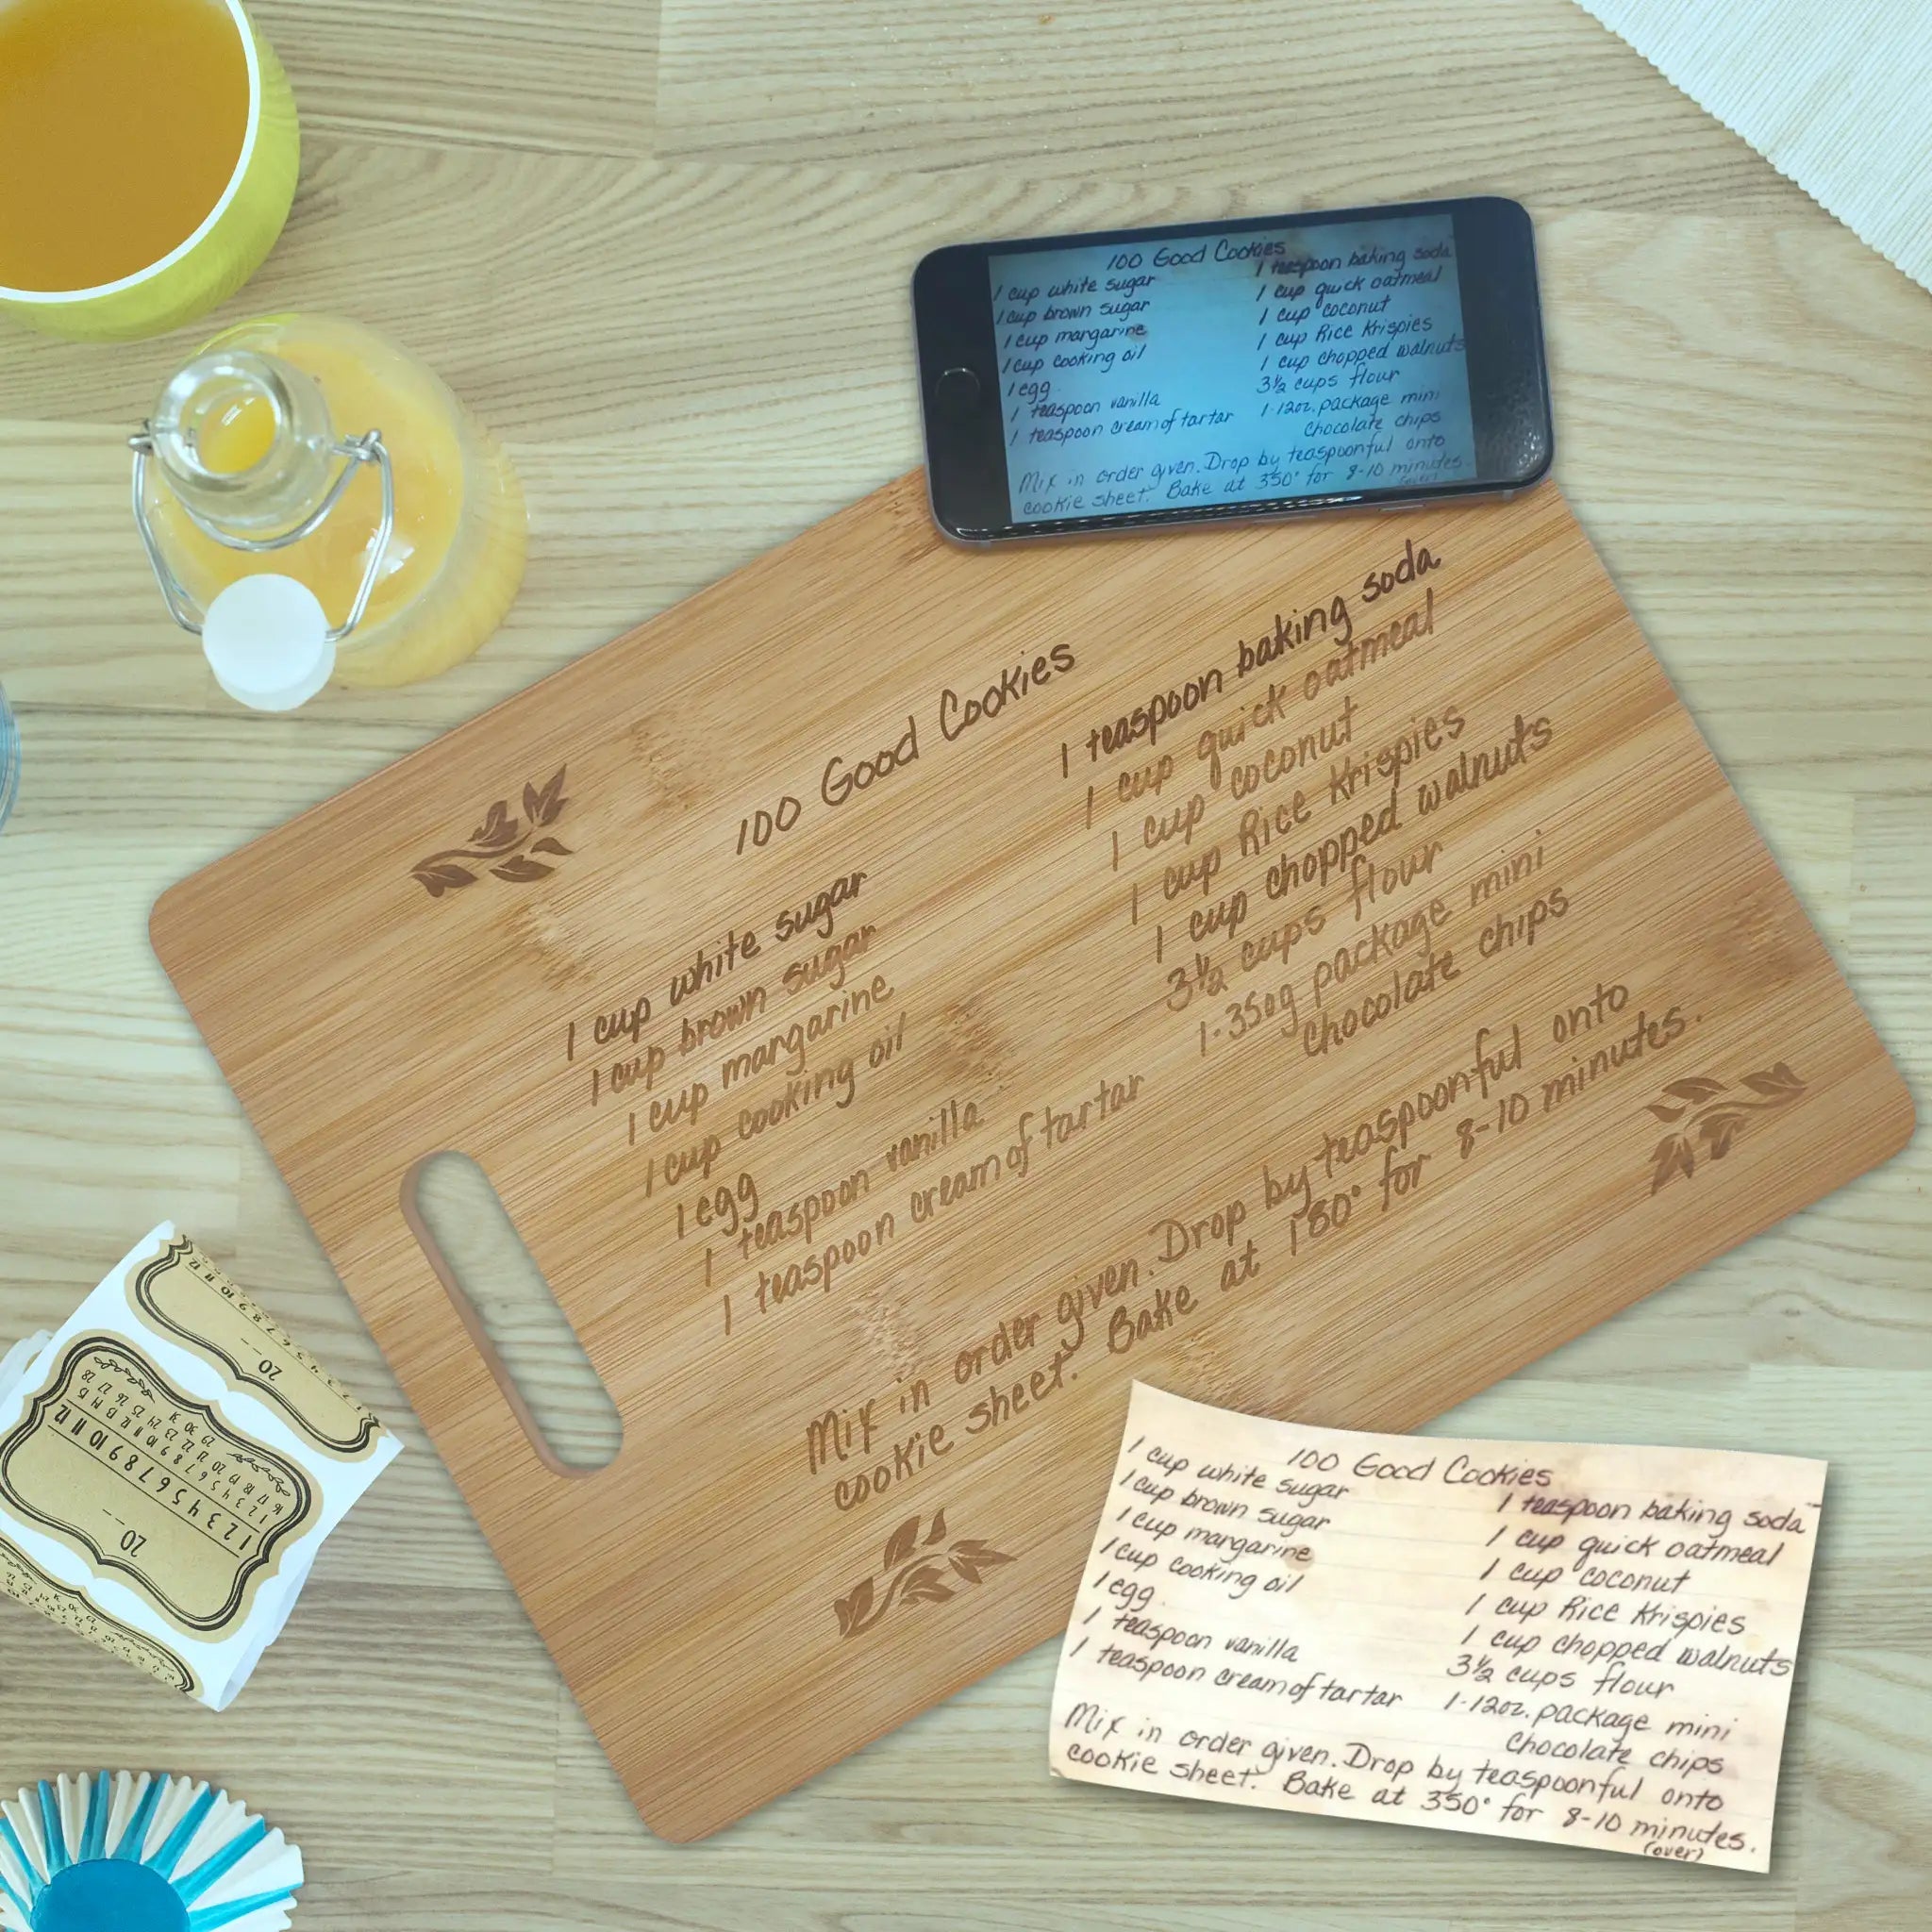 100 Good Cookies
1 cup white sugar
1 cup brown sugar
1 cup margarine
1 cup cooking oil
1 egg
1 teaspoon vanilla
1 teaspoon cream of tartar
1 teaspoon baking soda
1 cup quick oatmeal
1 cup coconut
1 cup Rice Krispies
1 cup chopped walnuts
3½ cups flour
1-12oz. package mini
chocolate chips
Mix in order given. Drop by teaspoonful onto
cookie sheet. Bake at 350° for 8-10 minutes.
(over)
100 Good Cookies
1 cup white sugar
1 cup brown sugar
1 cup margarine
1 cup cooking oil
1 egg
1 teaspoon vanilla
1 teaspoon cream of tartar
1 teaspoon baking soda
1 cup quick oatmeal
1 cup coconut
1 cup Rice Krispies
1 cup chopped walnuts
3½ cups flour
1-350g package mini
chocolate chips
Mix in order given. Drop by teaspoonful onto
cookie sheet. Bake at 180° for 8-10 minutes.
20
1 2 3 4 5 6 7 8 9 10 11 12
20
100 Good Cookies
1 cup white sugar
1 cup brown sugar
1 cup margarine
1 cup cooking oil
1 egg
1 teaspoon vanilla
1 teaspoon cream of tartar
1 teaspoon baking soda
1 cup quick oatmeal
1 cup coconut
1 cup Rice Krispies
1 cup chopped walnuts
3½ cups flour
1-12oz. package mini
chocolate chips
Mix in order given. Drop by teaspoonful onto
cookie sheet. Bake at 350° for 8-10 minutes.
(over)